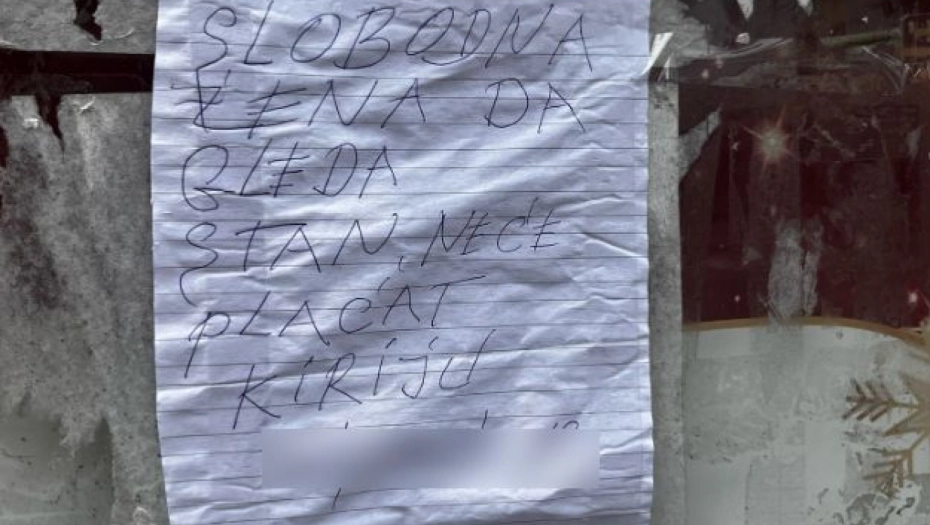 SLOBODNA
ŽENA DA
GLEDA
STAN, NEĆE
PLAĆAT
KIRIJU